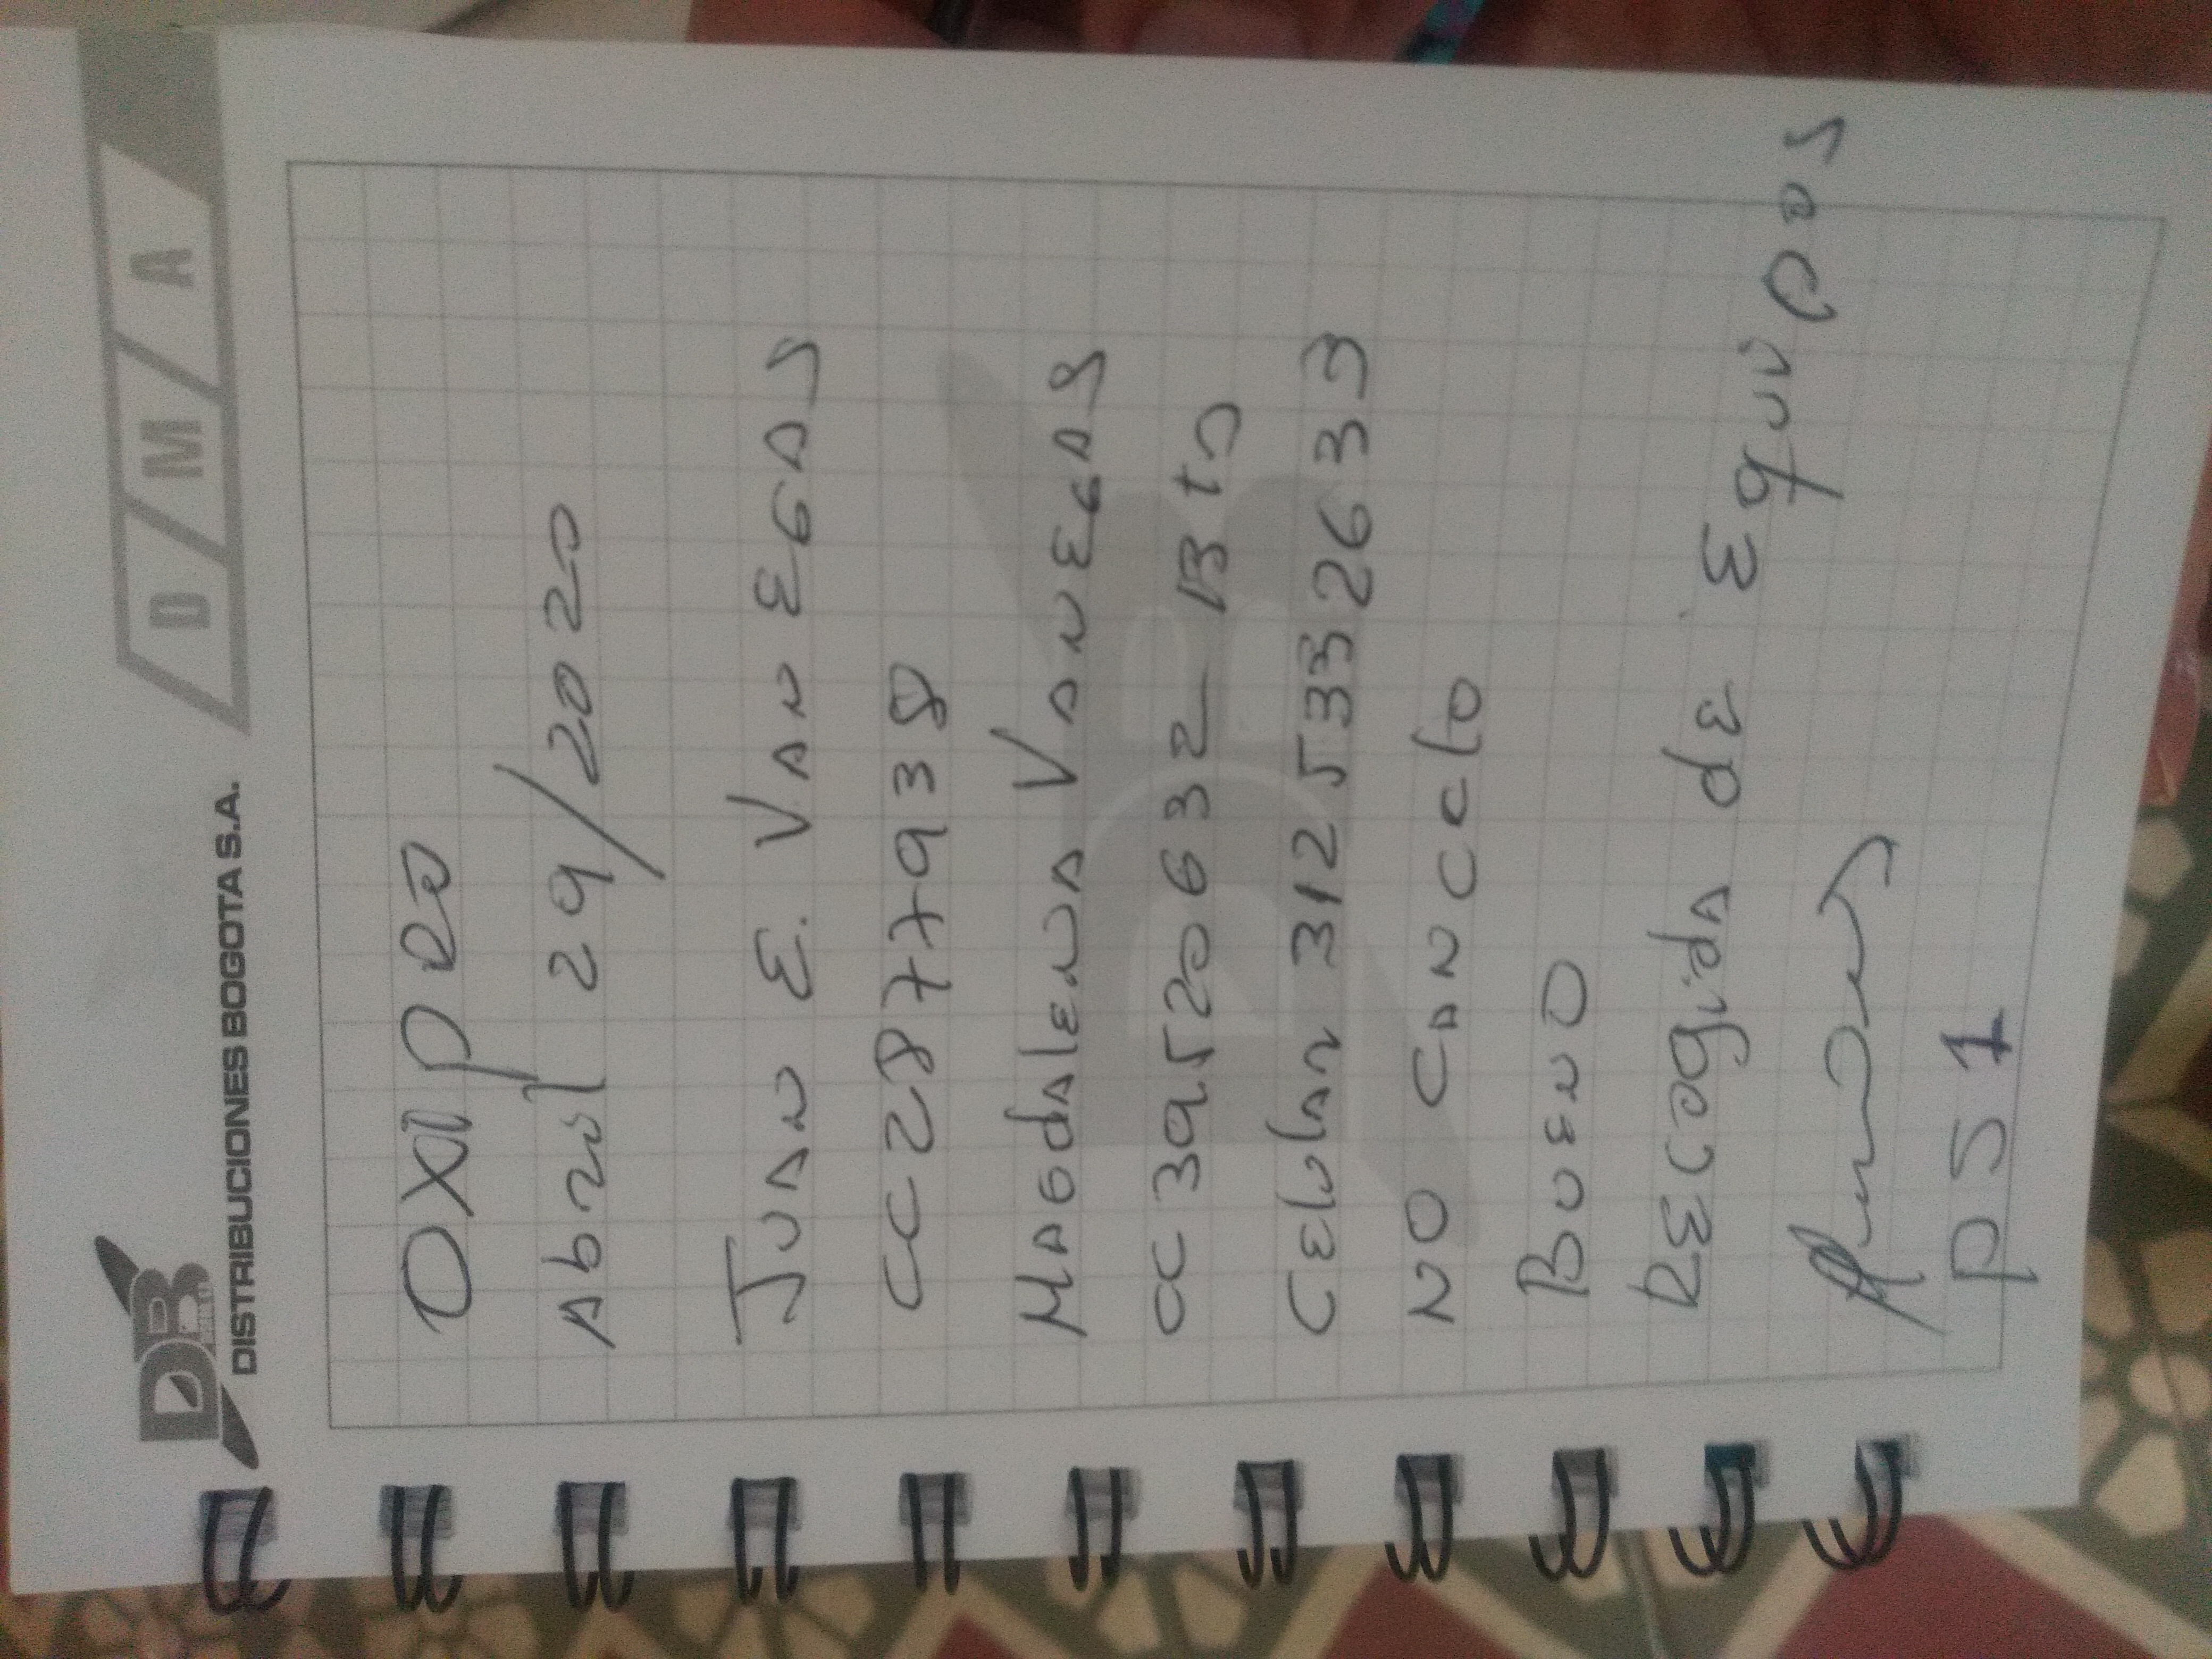 DB
DISTRIBUCIONES BOGOTA S.A.
D / M / A
OXIPRO
Abril 29/2020
JUAN E. VANEGAS
CC 2877938
MAGdALENA VANEGAS
CC 39520632 Bta
CELULAR 3125332633
NO CANCELO
BUENO
RECOGIDA DE EQUIPOS
PS 1